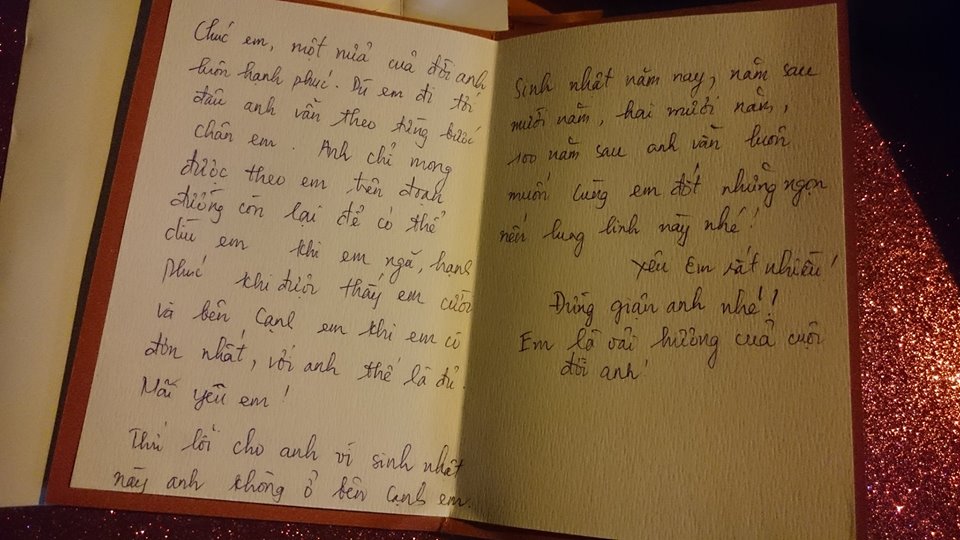 Chúc em, một nửa của đời anh
luôn hạnh phúc. Dù em đi tới
đâu anh vẫn theo từng bước
chân em. Anh chỉ mong
được theo em trên đoạn
đường còn lại để có thể
dìu em khi em ngã, hạnh
phúc khi được thấy em cười
và bên cạnh em khi em cô
đơn nhất, với anh thế là đủ.
Mãi yêu em!
Thứ lỗi cho anh vì sinh nhật
này anh không ở bên cạnh em.
Sinh nhật năm nay, năm sau
mười năm, hai mươi năm,
100 năm sau anh vẫn luôn
muốn cùng em đốt những ngọn
nến lung linh này nhé!
Yêu Em rất nhiều!
Đừng giận anh nhé!?
Em là vải hướng của cuộc
đời anh!